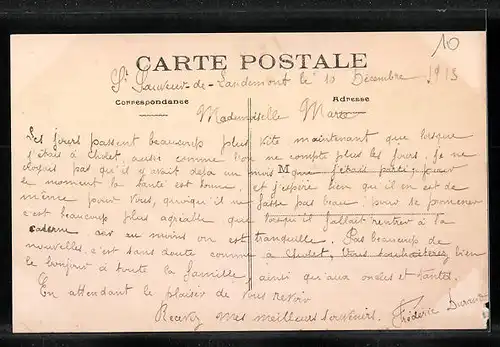 10
CARTE POSTALE
St Sauveur-de-Landemont le 10 Décembre 1913
Correspondance
Adresse
Mademoiselle Marie
Les jours passent beaucoup plus vite maintenant que lorsque
j'étais à Cholet, aussi comme l'on ne compte plus les jours, je ne
croyais pas qu'il y avait déjà un mois M que j'étais parti; pour
le moment la santé est bonne, et j'espère bien qu'il en est de
même pour vous, quoiqu'il ne fasse pas beau pour se promener
c'est beaucoup plus agréable que lorsqu'il fallait rentrer à la
caserne car au moins on est tranquille. Pas beaucoup de
nouvelles, c'est sans doute comme à Cholet, Vous souhaiterez bien
le bonjour à toute la famille ainsi qu'aux oncles et tantes.
En attendant le plaisir de vous revoir
Recevez mes meilleurs souvenirs. Frédéric